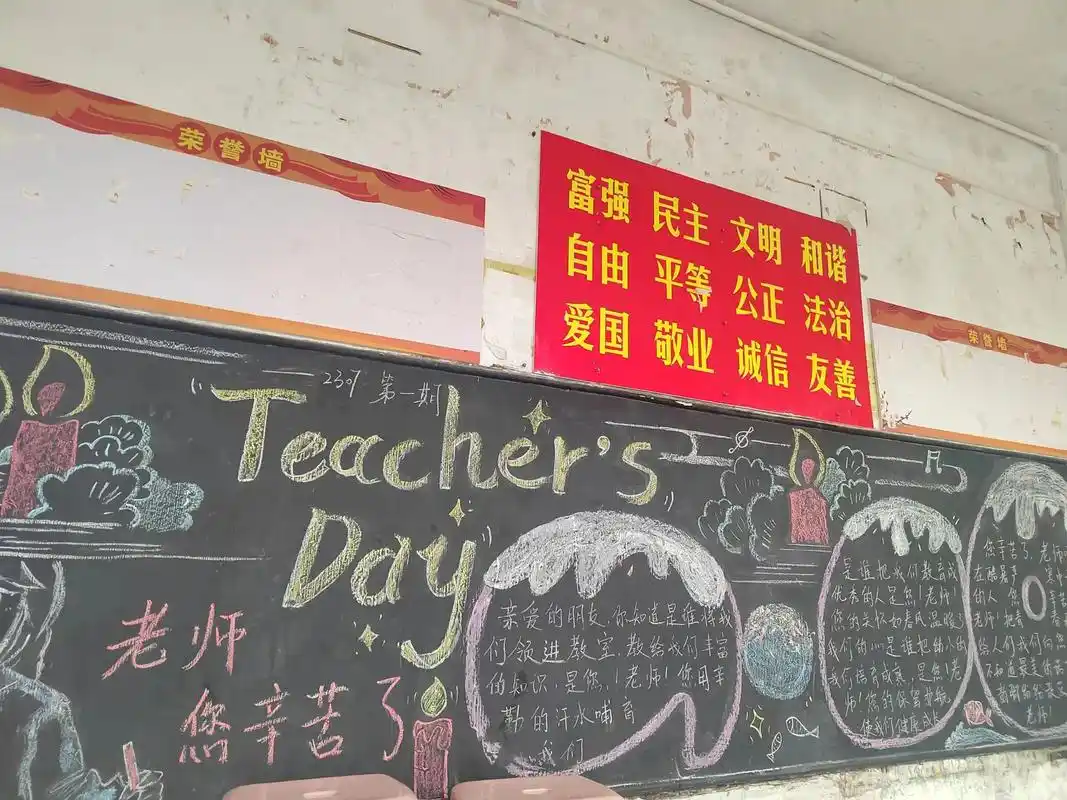 荣誉墙
富强 民主 文明 和谐
自由 平等 公正 法治
爱国 敬业 诚信 友善
荣誉墙
2307 第一期
"Teacher's
Day"
老师
您辛苦了
亲爱的朋友,你知道是谁将我
们领进教室,教给我们丰富
的知识,是您,!老师!您用辛
勤的汗水哺育
我们
是谁把我们教育成
优秀的人是您!老师!
您的关怀如春风温暖
我们的心是谁把幼小的
我们培育成熟,是您!老
师!您的保驾护航
使我们健康成长
您辛苦了,老师
在酷暑严寒中
的人 您
老师!把看
给人们我们向您
老师!